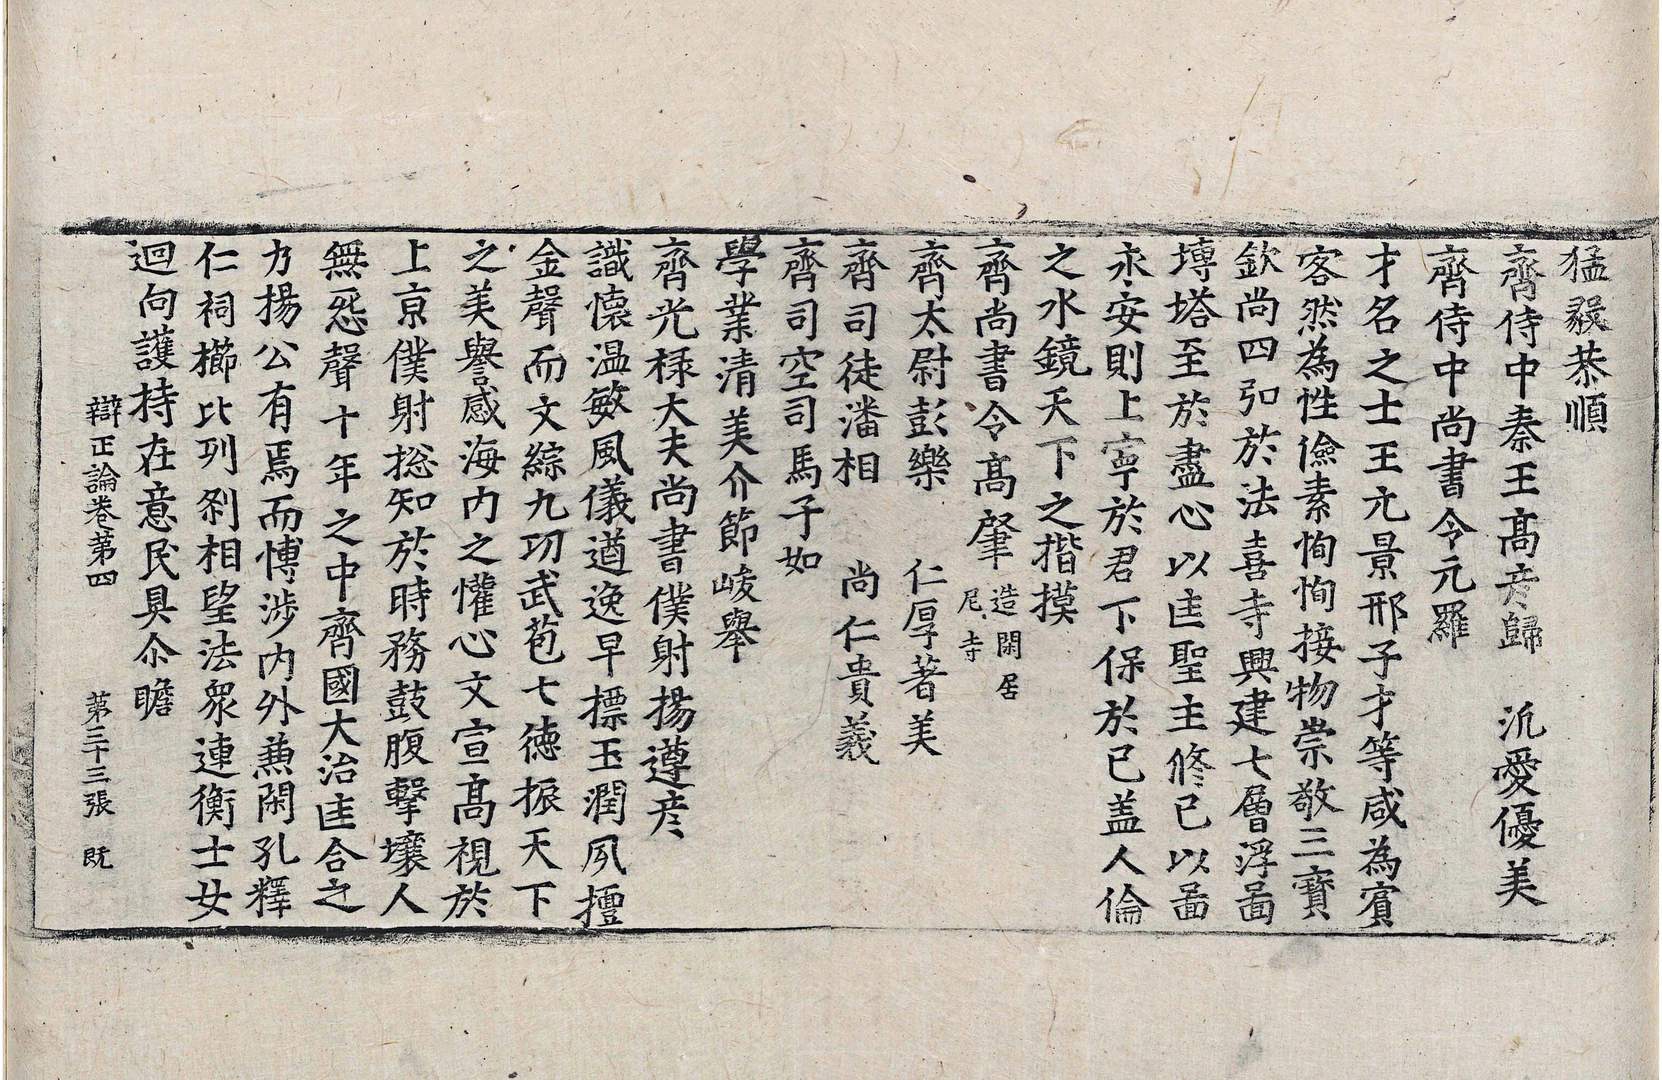 猛毅恭順
齊侍中秦王高彦歸　汎愛優美
齊侍中尚書令元羅
才名之士王元景邢子才等咸為賔
客然為性儉素恂恂接物崇敬三寳
欽尚四弘於法喜寺興建七層浮啚
塼塔至於盡心以匡聖主修已以啚
永安則上寧於君下保於已盖人倫
之水鏡天下之揩摸
齊尚書令高肇造閑居尼寺
齊太尉彭樂　仁厚著美
齊司徒潘相　尚仁貴義
齊司空司馬子如
學業清美介節峻舉
齊光禄大夫尚書僕射揚遵彦
識懷温敏風儀遒逸早摽玉潤夙擅
金聲而文綜九功武苞七德振天下
之美譽感海内之懽心文宣高視於
上京僕射捴知於時務鼓腹擊壤人
無怨聲十年之中齊國大治匡合之
力揚公有焉而愽涉内外兼閑孔釋
仁祠櫛比列刹相望法衆連衡士女
迴向護持在意民具尒瞻
辯正論卷第四　第三十三張　既